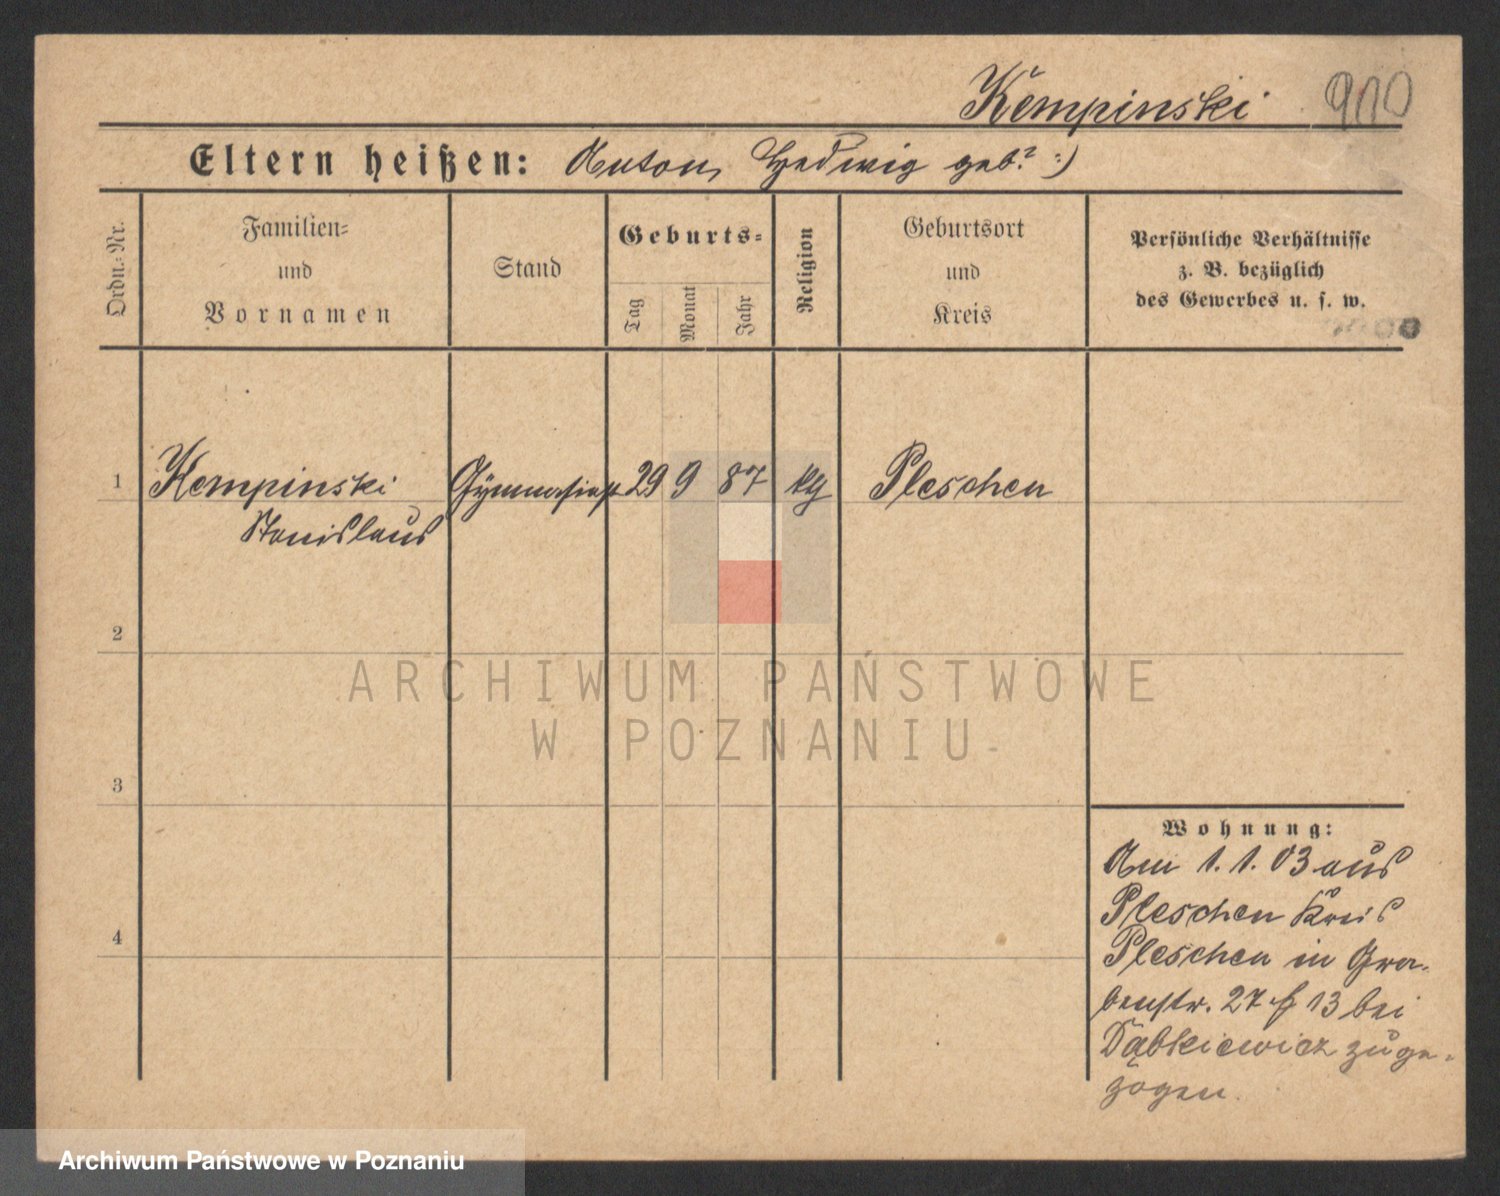 Kempinski 900
Eltern heißen: Anton, Hedwig geb.? :)
Ordn.-Nr.
Familien-
und
Vornamen
Stand
Geburts-
Tag
Monat
Jahr
Religion
Geburtsort
und
Kreis
Persönliche Verhältnisse
z. B. bezüglich
des Gewerbes u. s. w.
1 Kempinski Gymnasiast 29 9 87 kg Pleschen
Stanislaus
2
ARCHIWUM PAŃSTWOWE
W POZNANIU
3
Wohnung:
Am 1.1.03 aus
Pleschen Kreis
4
Pleschen in Gra-
benstr. 27 13 bei
Dąbkiewicz zuge-
zogen.
Archiwum Państwowe w Poznaniu